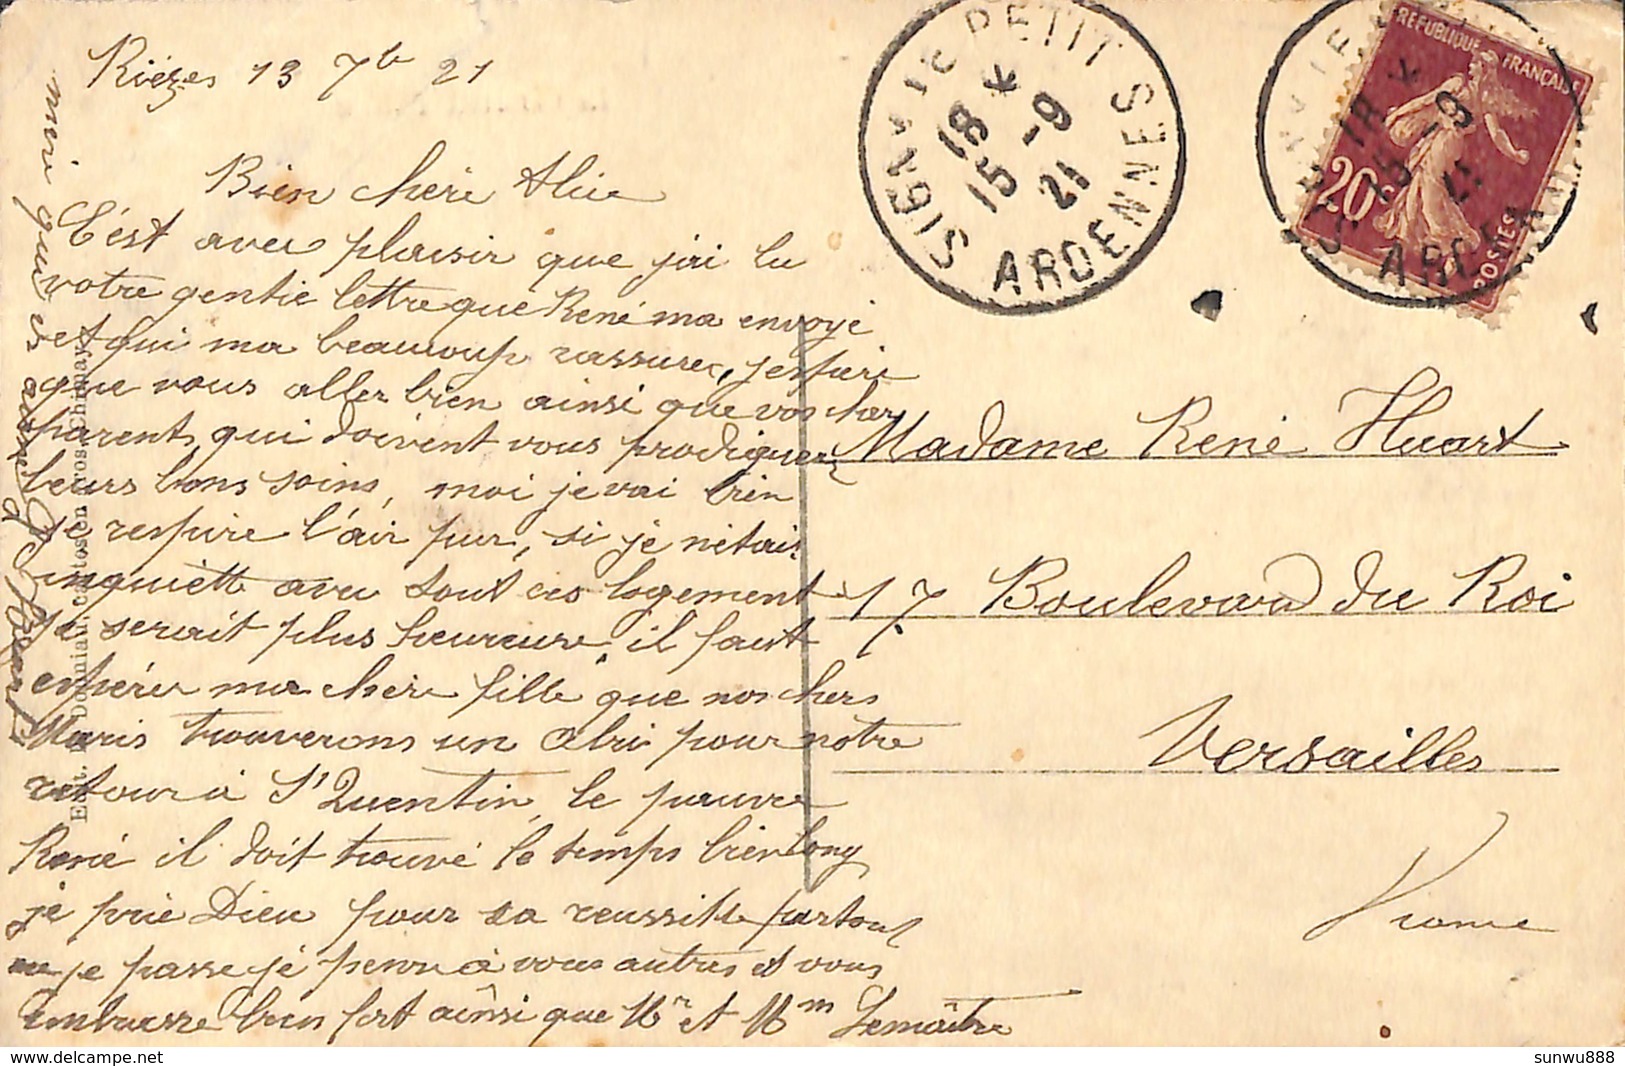 Rièzes 13 7b 21
Bien chère Alice
C'est avec plaisir que j'ai lu
votre gentie lettre que René ma envoyé
et qui ma beaucoup rassurer, j'espère
que vous aller bien ainsi que vos cher
parents qui doivent vous prodiguer
leurs bons soins, moi je vai bien
je respire l'air pur, si je nétais
inquiette avec tout ces logement
je serait plus heureuse, il faut
espérer ma chère fille que nos chers
Maris trouverons un abri pour notre
retour à St Quentin, le pauvre
René il doit trouvé le temps bien long
je prie Dieu pour sa reussitte partout
ou je passe je pense à vous autres et vous
embrasse bien fort ainsi que Mr et Mm Lemaître
meri qui vs aime
Edit. Domnial, cartes en gros Chimay
SIGNY LE PETIT
ARDENNES
18 *
15 -9
21
REPUBLIQUE FRANÇAISE
20c
POSTES
18 *
15 -9
21
Madame René Huart
17 Boulevard du Roi
Versailles
sunwu888